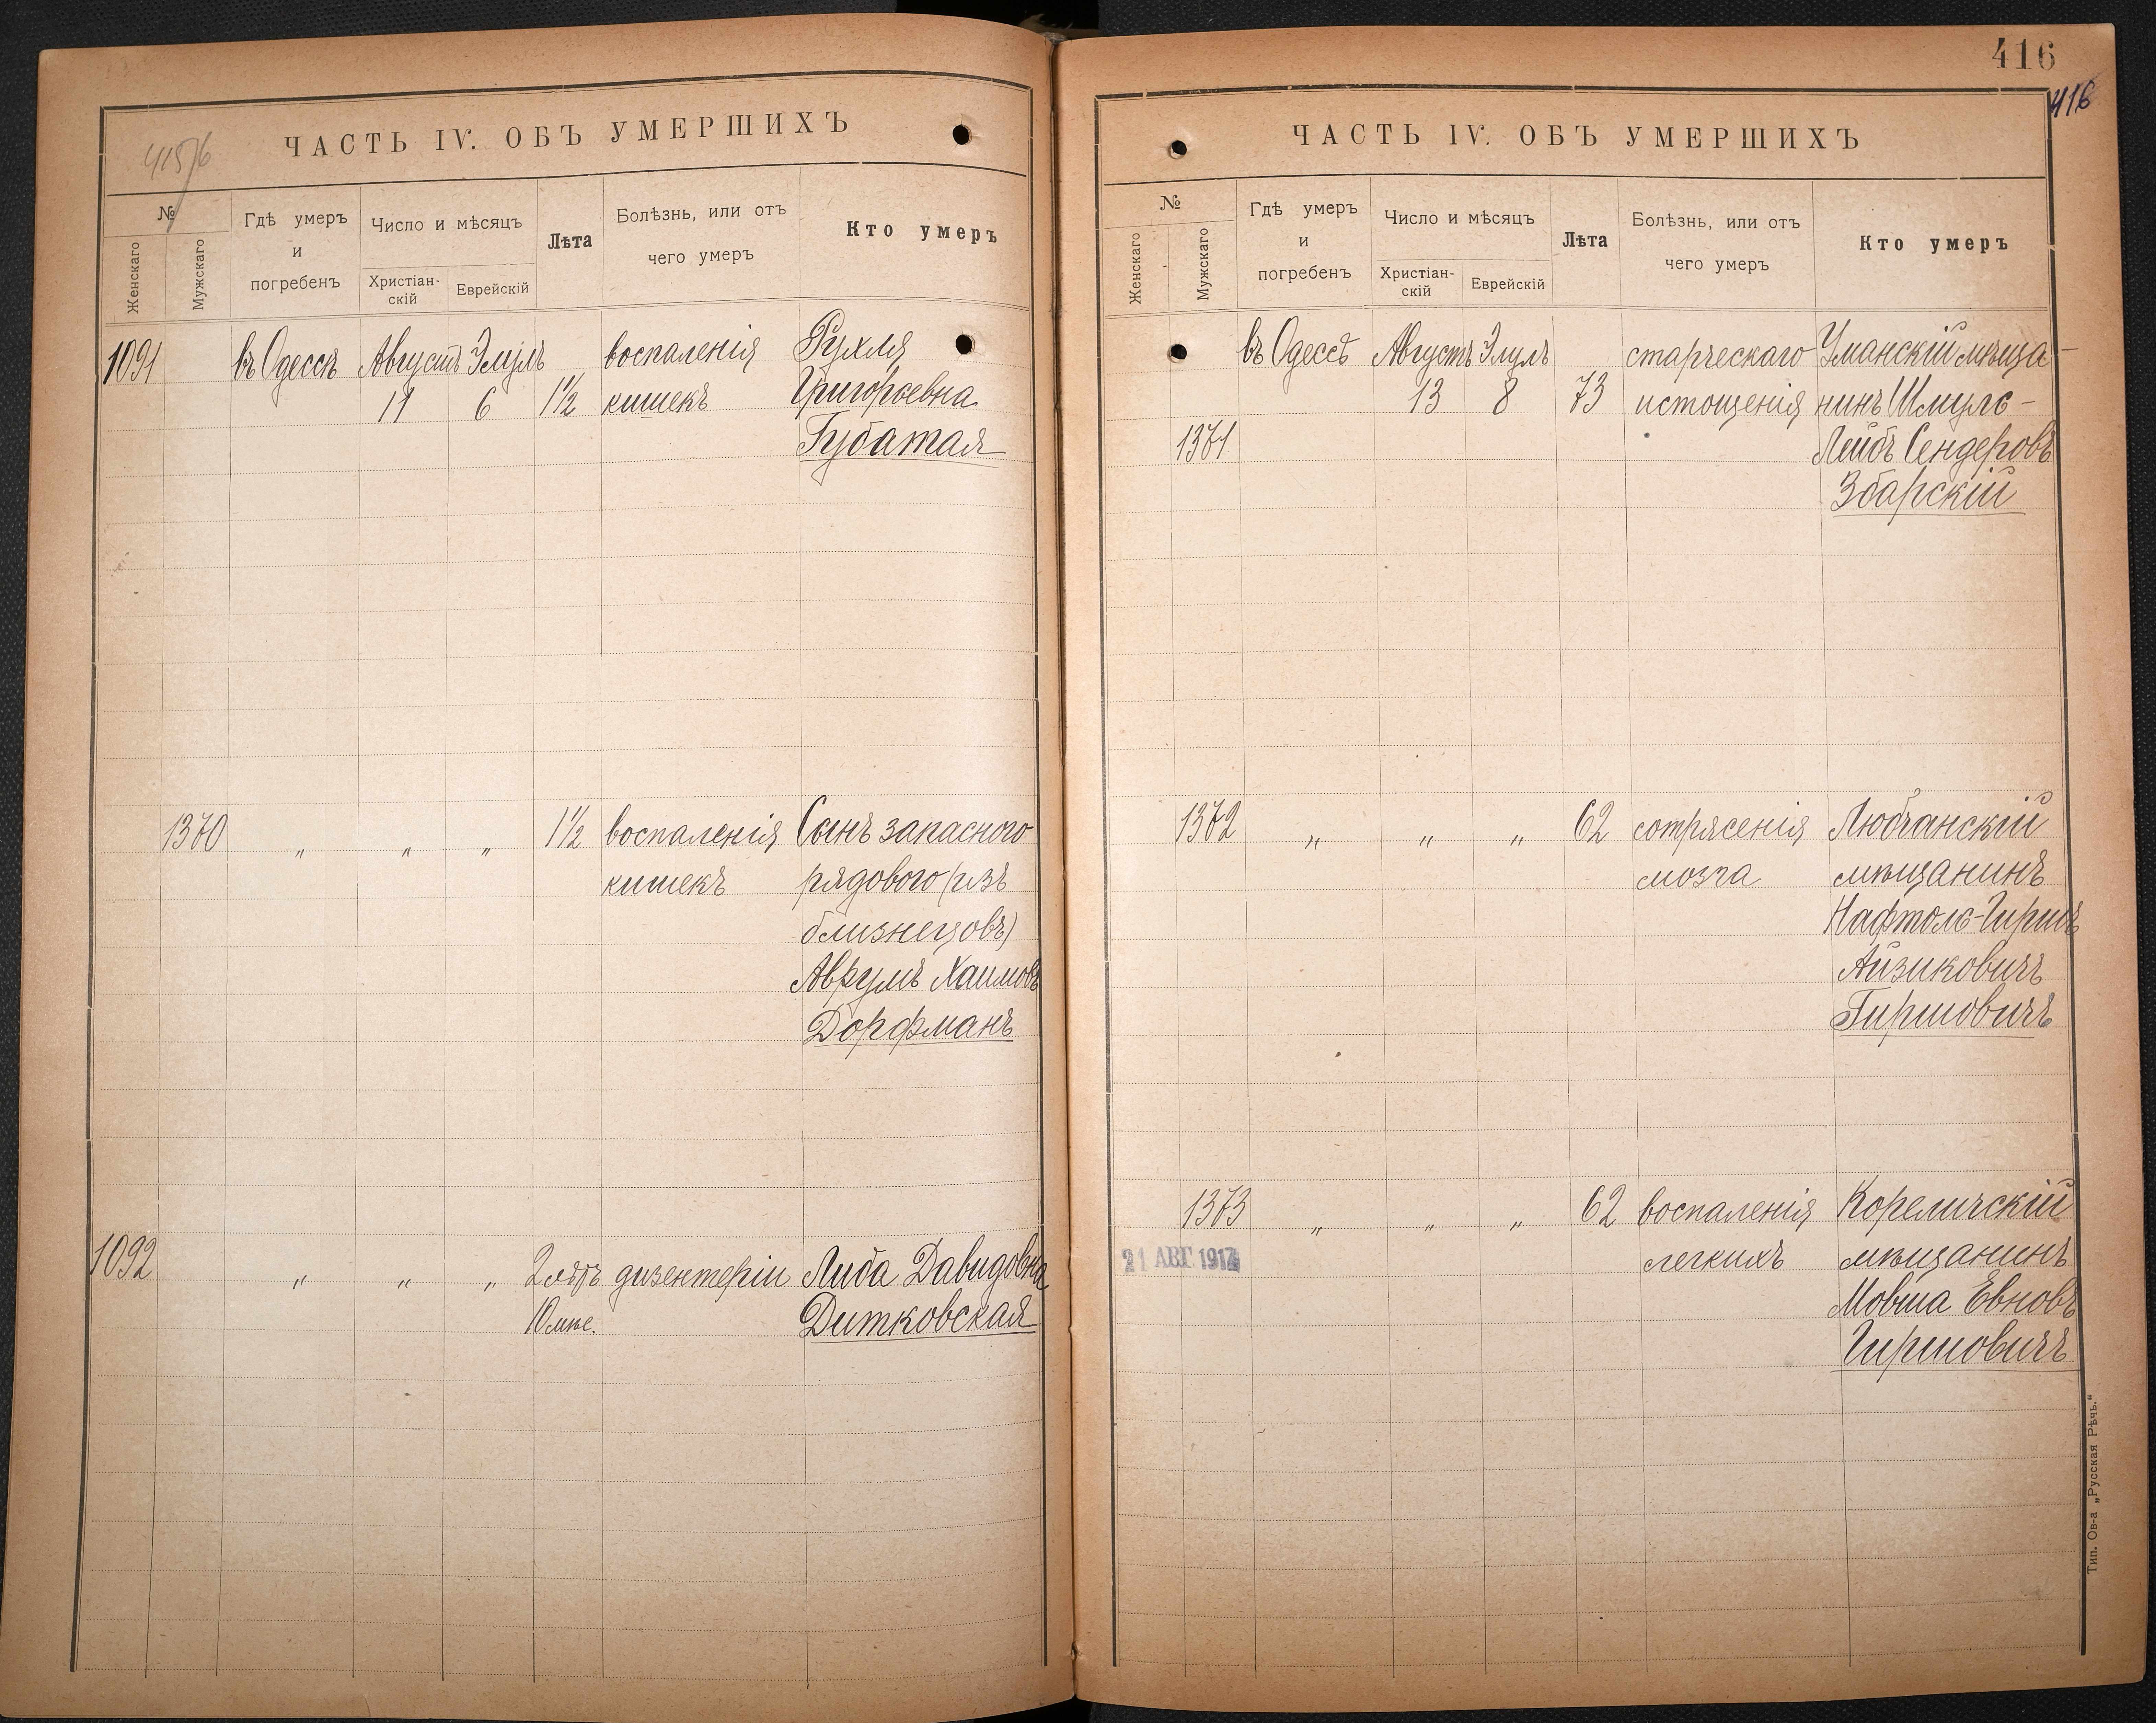 415/6
ЧАСТЬ IV. ОБЪ УМЕРШИХЪ
№
Женскаго
Мужскаго
Гдѣ умеръ
и
погребенъ
Число и мѣсяцъ
Христіан-
скій
Еврейскій
Лѣта
Болѣзнь, или отъ
чего умеръ
Кто умеръ
1091 въ Одессѣ Августъ Элулъ воспаленія Рухля
11 6 1½ кишекъ Григорьевна
Губатая
1370 „ „ „ 1½ воспаленія Сынъ запасного
кишекъ рядового (изъ
близнецовъ)
Аврумъ Хаимовъ
Дорфманъ
1092 „ „ „ 2 дизентеріи Либа Давидовна
10 мѣс. Дитковская
416
416
ЧАСТЬ IV. ОБЪ УМЕРШИХЪ
№
Женскаго
Мужскаго
Гдѣ умеръ
и
погребенъ
Число и мѣсяцъ
Христіан-
скій
Еврейскій
Лѣта
Болѣзнь, или отъ
чего умеръ
Кто умеръ
въ Одессѣ Августъ Элулъ старческаго Уманскій мѣща-
13 8 73 истощенія нинъ Шмуль-
1371 Лейбъ Сендеровъ
Збарскій
1372 „ „ „ 62 сотрясенія Любчанскій
мозга мѣщанинъ
Нафтоль-Гиршъ
Айзиковичъ
Гиршовичъ
1373 „ „ „ 62 воспаленія Кореличскій
21 АВГ 1917 легкихъ мѣщанинъ
Мовша Евновъ
Гиршовичъ
Тип. Ов-а „Русская Рѣчь.“